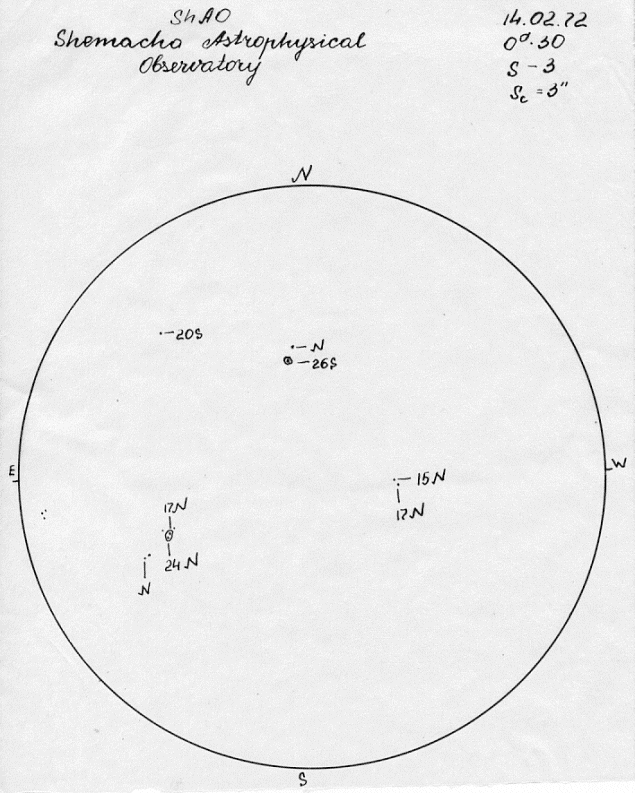 ShAO
Shemacha Astrophysical
Observatory
14.02.72
0ᵈ.30
S - 3
Sc = 3"
N
20S
N
26S
E
W
15N
17N
17N
24N
N
S